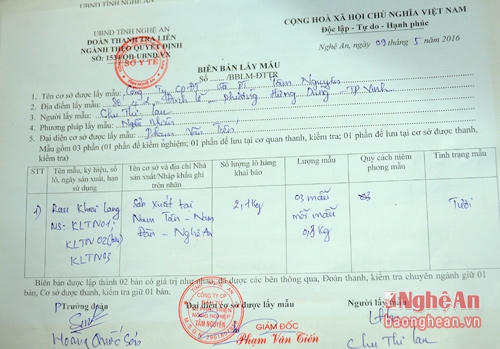 UBND TỈNH NGHỆ AN
UBND TỈNH NGHỆ AN
ĐOÀN THANH TRA LIÊN
NGÀNH THEO QUYẾT ĐỊNH
SỞ Y TẾ
CỘNG HOÀ XÃ HỘI CHỦ NGHĨA VIỆT NAM
Độc lập - Tự do - Hạnh phúc
Nghệ An, ngày 09 tháng 5 năm 2016
BIÊN BẢN LẤY MẪU
Số ....../BBLM-ĐTTR
1. Tên cơ sở được lấy mẫu: Công ty CP ĐT Tâm Nguyên
2. Địa điểm lấy mẫu: phường Hưng Dũng TP Vinh
3. Người lấy mẫu: Chu Thị Lan
4. Phương pháp lấy mẫu: Ngẫu nhiên
5. Đại diện cơ sở được lấy mẫu: Phạm Văn Tiến
Mẫu gồm 03 phần (01 phần để kiểm nghiệm; 01 phần để lưu tại cơ quan thanh, kiểm tra; 01 phần để lưu tại cơ sở được thanh,
kiểm tra)
STT Tên mẫu, ký hiệu, số lô, ngày sản xuất, hạn sử dụng Cơ sở và địa chỉ Nhà sản xuất/Nhập khẩu ghi trên nhãn Số lượng lô hàng khai báo Lượng mẫu Quy cách niêm phong mẫu Tình trạng mẫu
1) Rau Khoai lang Sản xuất tại 2,1kg 03 mẫu 03 Tươi
NS: KLTN01; Nam Tân - Nam mỗi mẫu
KLTN 02 Đàn - Nghệ An 0,3kg
KLTN03
Biên bản được lập thành 02 bản có giá trị như nhau, đã được các bên thông qua, Đoàn thanh, kiểm tra chuyên ngành giữ 01
bản, Cơ sở được thanh, kiểm tra giữ 01 bản.
P Trưởng đoàn Đại diện cơ sở được lấy mẫu Người lấy mẫu
CÔNG TY CP
NÔNG NGHIỆP
TÂM NGUYÊN
GIÁM ĐỐC
Phạm Văn Tiến
Chu Thị Lan
Nghệ An
baonghean.vn